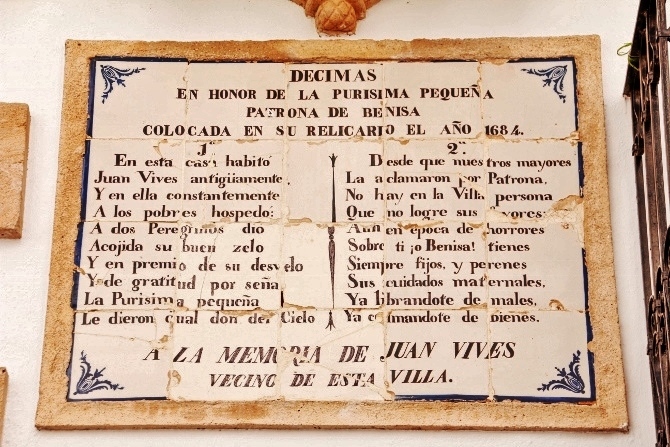 DECIMAS
EN HONOR DE LA PURISIMA PEQUEÑA
PATRONA DE BENISA
COLOCADA EN SU RELICARIO EL AÑO 1684.
1ª
En esta casa habitó
Juan Vives antigüamente.
Y en ella constantemente
A los pobres hospedó:
A dos Peregrinos dió
Acojida su buen zelo
Y en premio de su desvelo
Y de gratitud por seña
La Purisima pequeña
Le dieron qual don del Cielo
2ª
Desde que nuestros mayores
La aclamaron por Patrona.
No hay en la Villa persona
Que no logre sus
Aun en época de horrores
Sobre ti ¡o Benisa! tienes
Siempre fijos, y perenes
Sus cuidados maternales,
Ya librandote de males,
Ya colmandote de bienes.
A LA MEMORIA DE JUAN VIVES
VECINO DE ESTA VILLA.